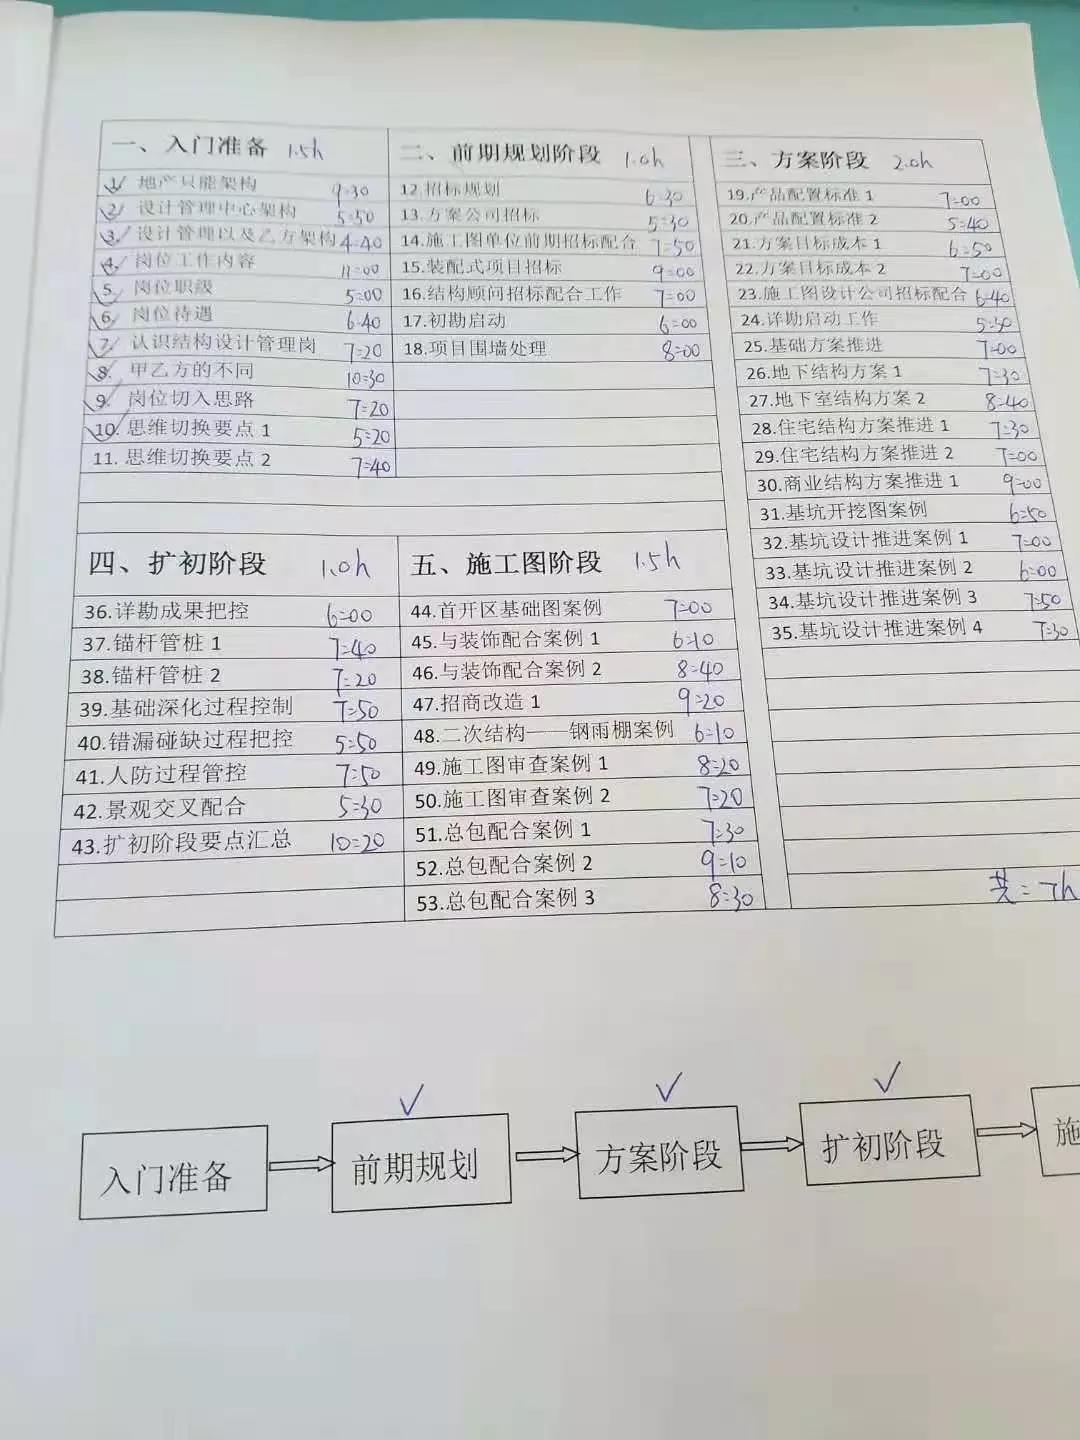 一、入门准备 1.5h
1. 地产只能架构 9:30
2. 设计管理中心架构 5:50
3. 设计管理以及乙方架构 4:40
4. 岗位工作内容 11:00
5. 岗位职级 5:00
6. 岗位待遇 6:40
7. 认识结构设计管理岗 7:20
8. 甲乙方的不同 10:30
9. 岗位切入思路 7:20
10. 思维切换要点 1 5:20
11. 思维切换要点 2 7:40
二、前期规划阶段 1.0h
12.招标规划 6:30
13.方案公司招标 5:30
14.施工图单位前期招标配合 7:50
15.装配式项目招标 9:00
16.结构顾问招标配合工作 7:00
17.初勘启动 6:00
18.项目围墙处理 8:00
三、方案阶段 2.0h
19.产品配置标准 1 7:00
20.产品配置标准 2 5:40
21.方案目标成本 1 6:50
22.方案目标成本 2 7:00
23.施工图设计公司招标配合 6:40
24.详勘启动工作 5:30
25.基础方案推进 7:00
26.地下结构方案 1 7:30
27.地下室结构方案 2 8:40
28.住宅结构方案推进 1 7:30
29.住宅结构方案推进 2 7:00
30.商业结构方案推进 1 9:00
31.基坑开挖图案例 6:50
32.基坑设计推进案例 1 7:00
33.基坑设计推进案例 2 6:00
34.基坑设计推进案例 3 7:50
35.基坑设计推进案例 4 7:30
四、扩初阶段 1.0h
36.详勘成果把控 6:00
37.锚杆管桩 1 7:40
38.锚杆管桩 2 7:20
39.基础深化过程控制 7:50
40.错漏碰缺过程把控 5:50
41.人防过程管控 7:50
42.景观交叉配合 5:30
43.扩初阶段要点汇总 10:20
五、施工图阶段 1.5h
44.首开区基础图案例 7:00
45.与装饰配合案例 1 6:10
46.与装饰配合案例 2 8:40
47.招商改造 1 9:20
48.二次结构——钢雨棚案例 6:10
49.施工图审查案例 1 8:20
50.施工图审查案例 2 7:20
51.总包配合案例 1 7:30
52.总包配合案例 2 9:10
53.总包配合案例 3 8:30
共:7h
入门准备
前期规划
方案阶段
扩初阶段
施